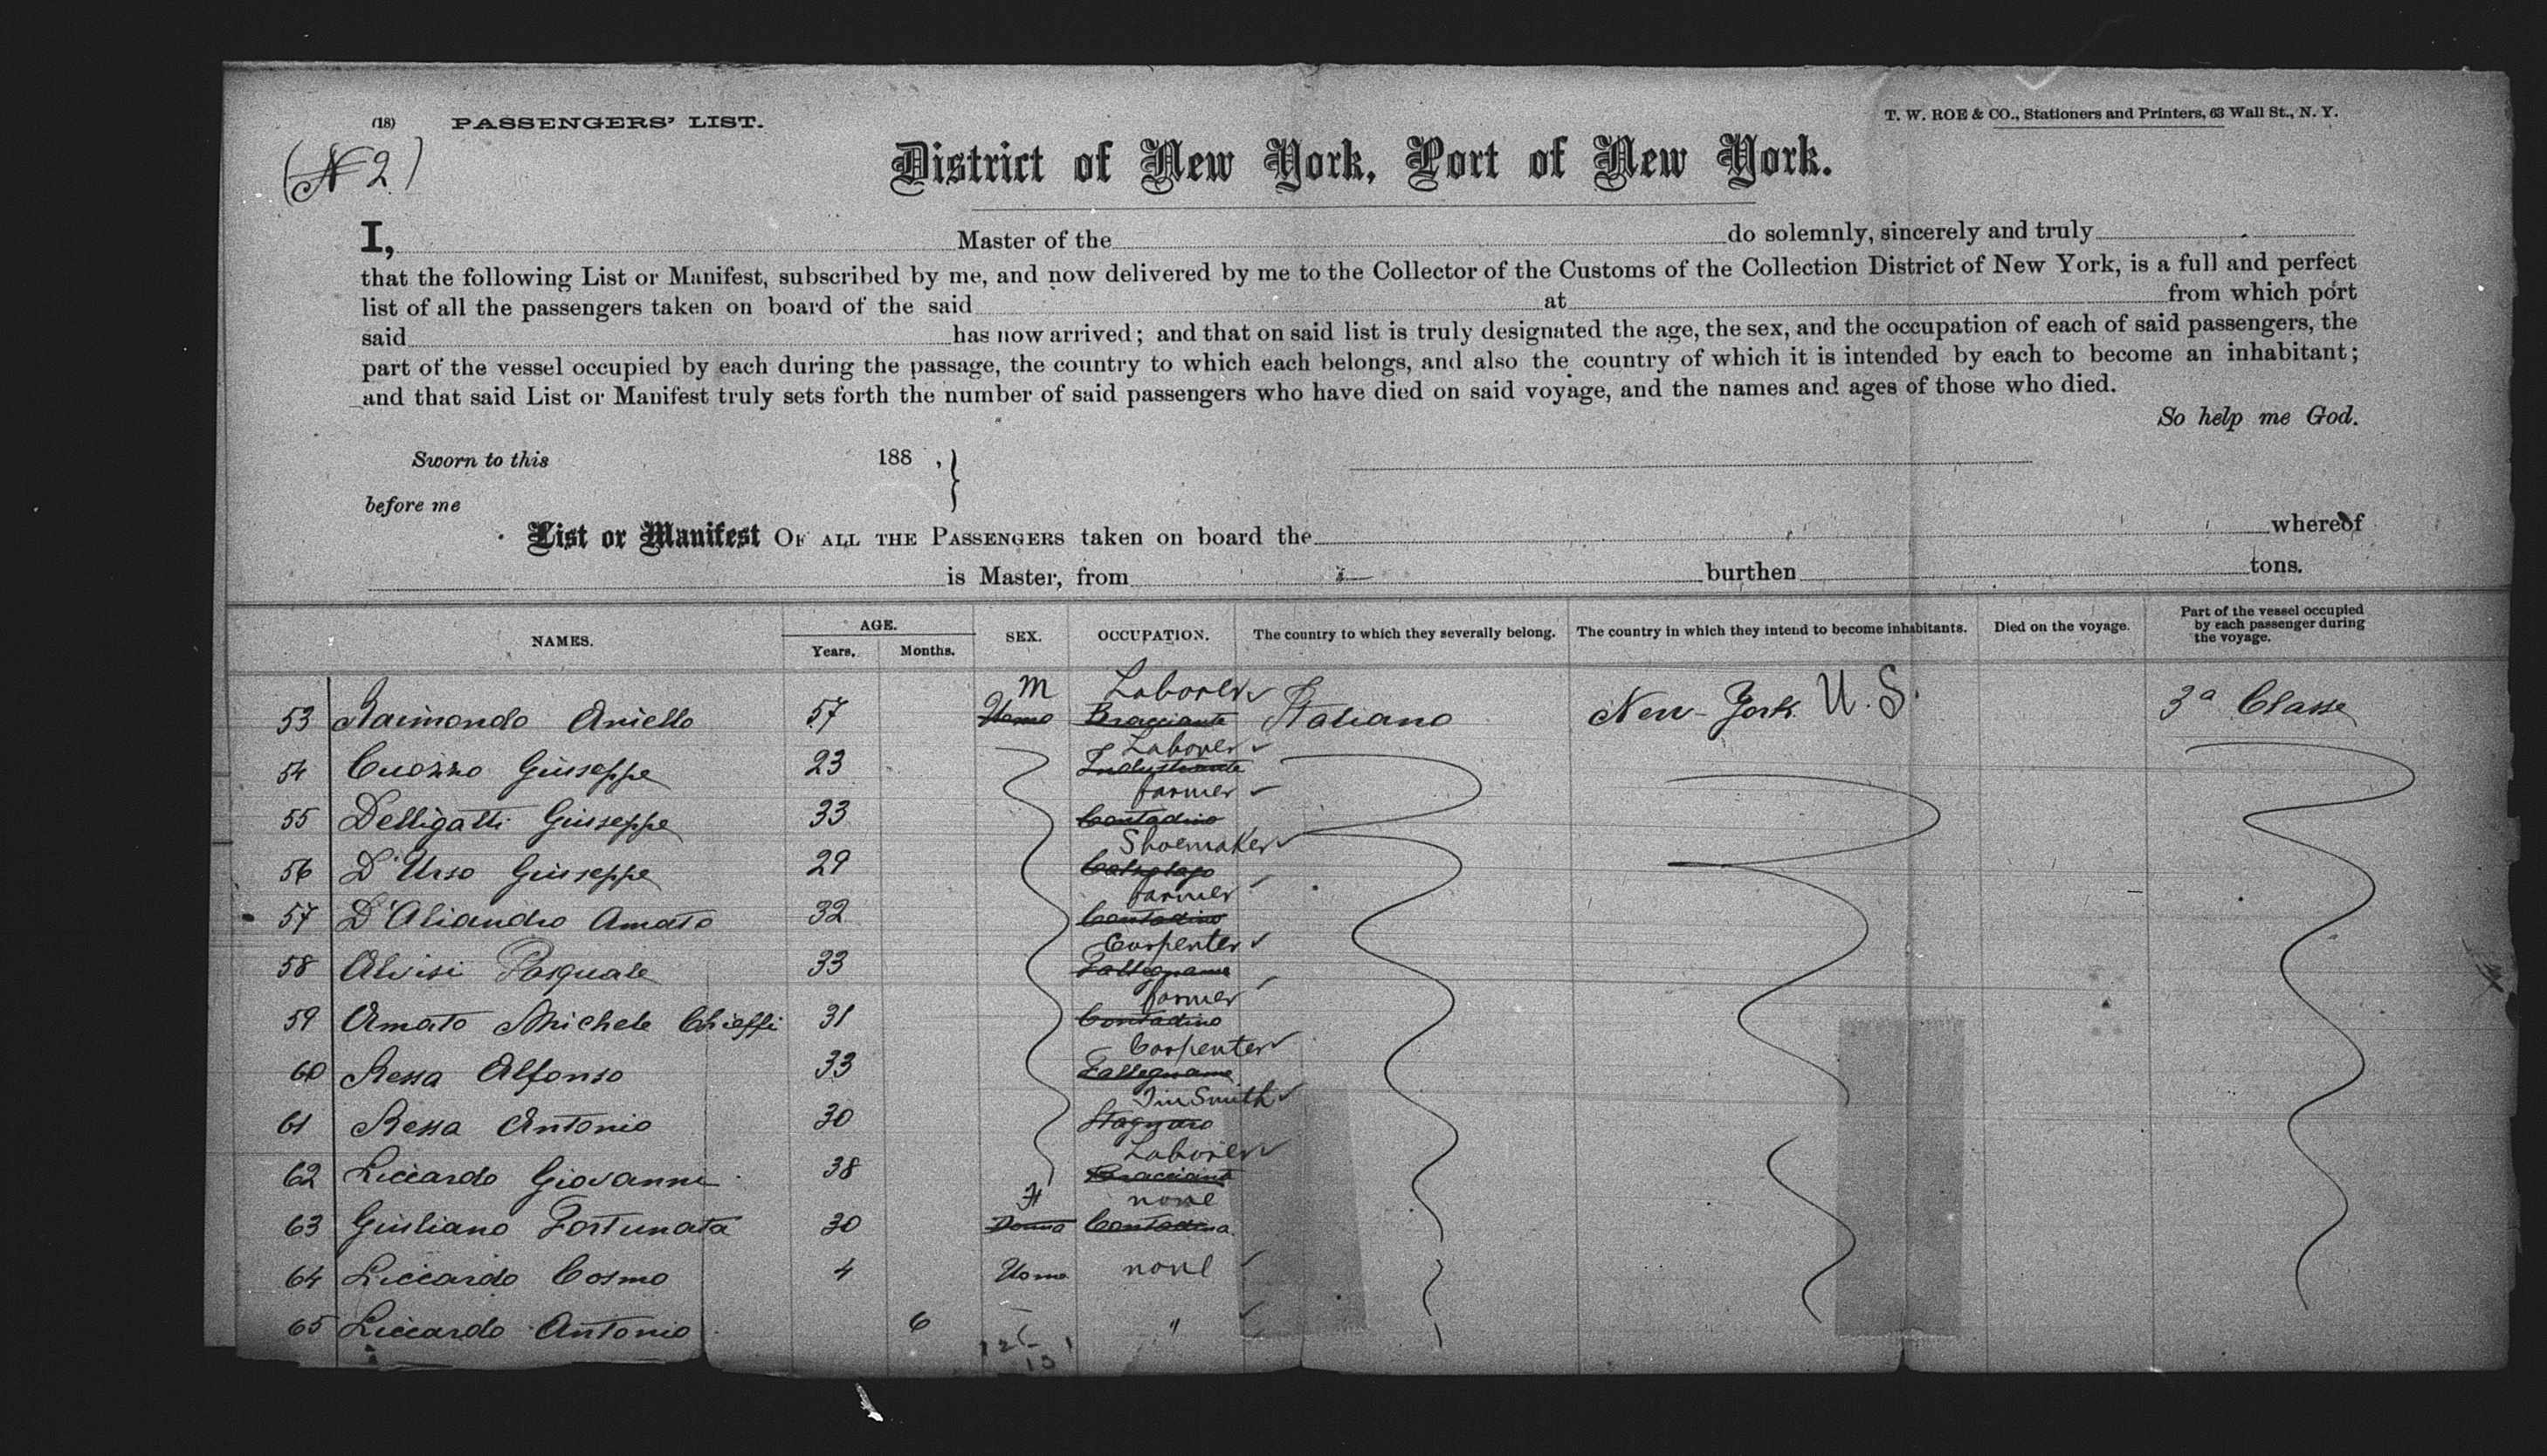 (18) PASSENGERS' LIST. T. W. ROE & CO., Stationers and Printers, 63 Wall St., N. Y.
(N 2)
District of New York, Port of New York.
I, Master of the do solemnly, sincerely and truly
that the following List or Manifest, subscribed by me, and now delivered by me to the Collector of the Customs of the Collection District of New York, is a full and perfect
list of all the passengers taken on board of the said at from which port
said has now arrived; and that on said list is truly designated the age, the sex, and the occupation of each of said passengers, the
part of the vessel occupied by each during the passage, the country to which each belongs, and also the country of which it is intended by each to become an inhabitant;
and that said List or Manifest truly sets forth the number of said passengers who have died on said voyage, and the names and ages of those who died.
So help me God.
Sworn to this 188 ,
before me
List or Manifest OF ALL THE PASSENGERS taken on board the whereof
is Master, from burthen tons.
NAMES. AGE. Years. Months. SEX. OCCUPATION. The country to which they severally belong. The country in which they intend to become inhabitants. Died on the voyage. Part of the vessel occupied by each passenger during the voyage.
M Laborer
53 Raimondo Aniello 57 Uomo Bracciante Italiano New-York U.S. 3a Classe
Laborer
54 Cuozzo Giuseppe 23 Industriante
farmer
55 Delligatti Giuseppe 33 Contadino
Shoemaker
56 D'Urso Giuseppe 29 Calzolajo
farmer
57 D'Aliandro Amato 32 Contadino
Carpenter
58 Alvisi Pasquale 33 Falegname
farmer
59 Amato Michele Chieffi 31 Contadino
Carpenter
60 Ressa Alfonso 33 Falegname
Tin Smith
61 Ressa Antonio 30 Stagnaro
Laborer
62 Liccardo Giovanni 38 Bracciante
F none
63 Giuliano Fortunata 30 Donna Contadina
64 Liccardo Cosmo 4 Uomo none
65 Liccardo Antonio 6 "